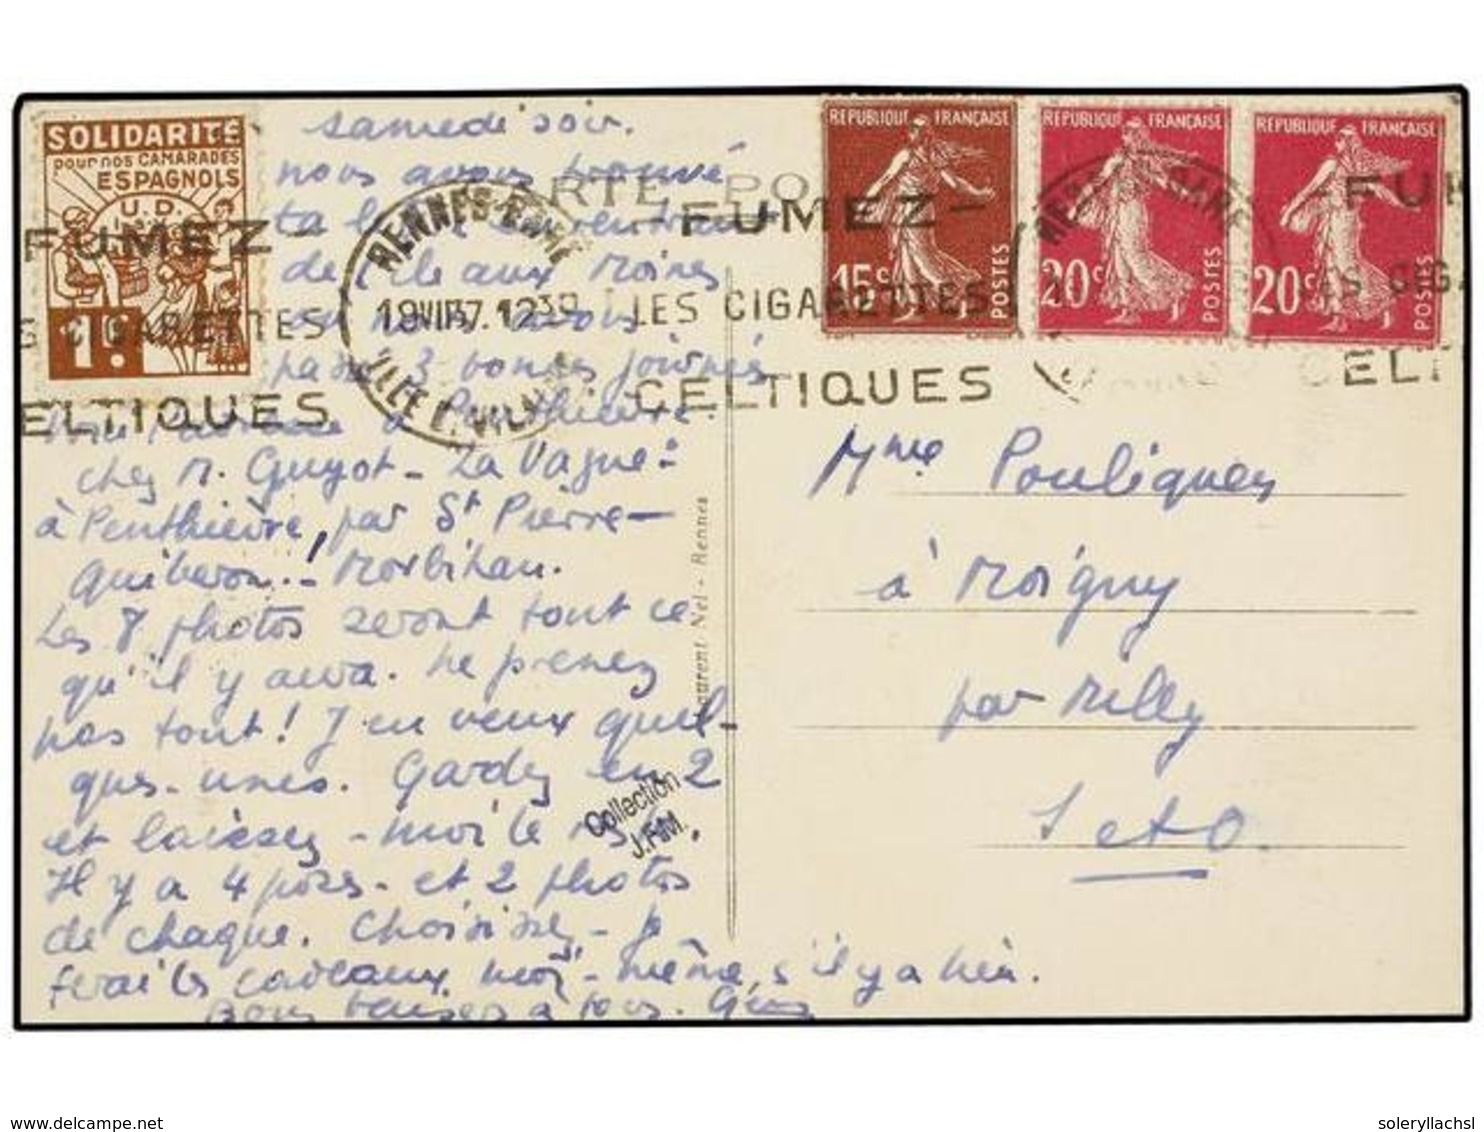 SOLIDARITÉ
pour nos CAMARADES
ESPAGNOLS
U.D.
1F.
samedi soir.
nous avons trouvé
ta
de l'Ile aux Moines
nous avons
passé 3 bonnes journées
à Penthièvre.
chez M. Guyot - La Vague -
à Penthièvre, par St Pierre -
Quiberon ! - Morbihan.
Les 8 photos seront tout ce
qu'il y aura. Ne prenez
pas tout ! J'en veux quel-
ques-unes. Gardez en 2
et laissez-moi le reste.
Il y a 4 poses - et 2 photos
de chaque. Choisissez - je
ferai les cadeaux moi-même, s'il y a lieu.
Bons baisers à tous.
CARTE PO
RENNES-GARE
19 VII 37. 12 30
ILLE ET VILAINE
FUMEZ-
LES CIGARETTES
CELTIQUES
FUMEZ-
G CIGARETTES
ELTIQUES
REPUBLIQUE FRANÇAISE
15c
POSTES
REPUBLIQUE FRANÇAISE
20c
POSTES
REPUBLIQUE FRANÇAISE
20c
POSTES
RENNES-GARE
FUM
S CIGA
CELTI
Laurent Nel - Rennes
Mme Pouliquen
à Moigny
par Milly
S et O.
Collection
J.F.M.
www.delcampe.net
soleryllachsl